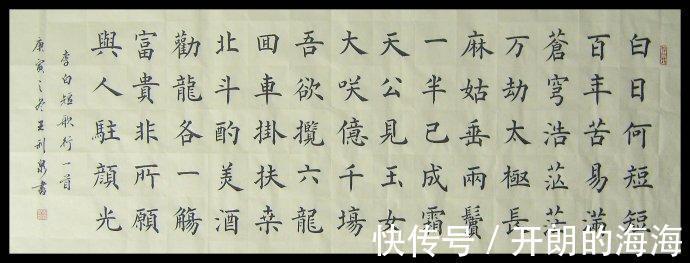 白日何短短
百年苦易滿
蒼穹浩茫茫
万劫太極長
麻姑垂兩鬢
一半已成霜
天公見玉女
大咲億千塲
吾欲攬六龍
囬車掛扶桒
北斗酌美酒
勸龍各一觴
富貴非所願
與人駐顔光
李白短歌行一首
庚寅之王利書
快传号/开朗的海海